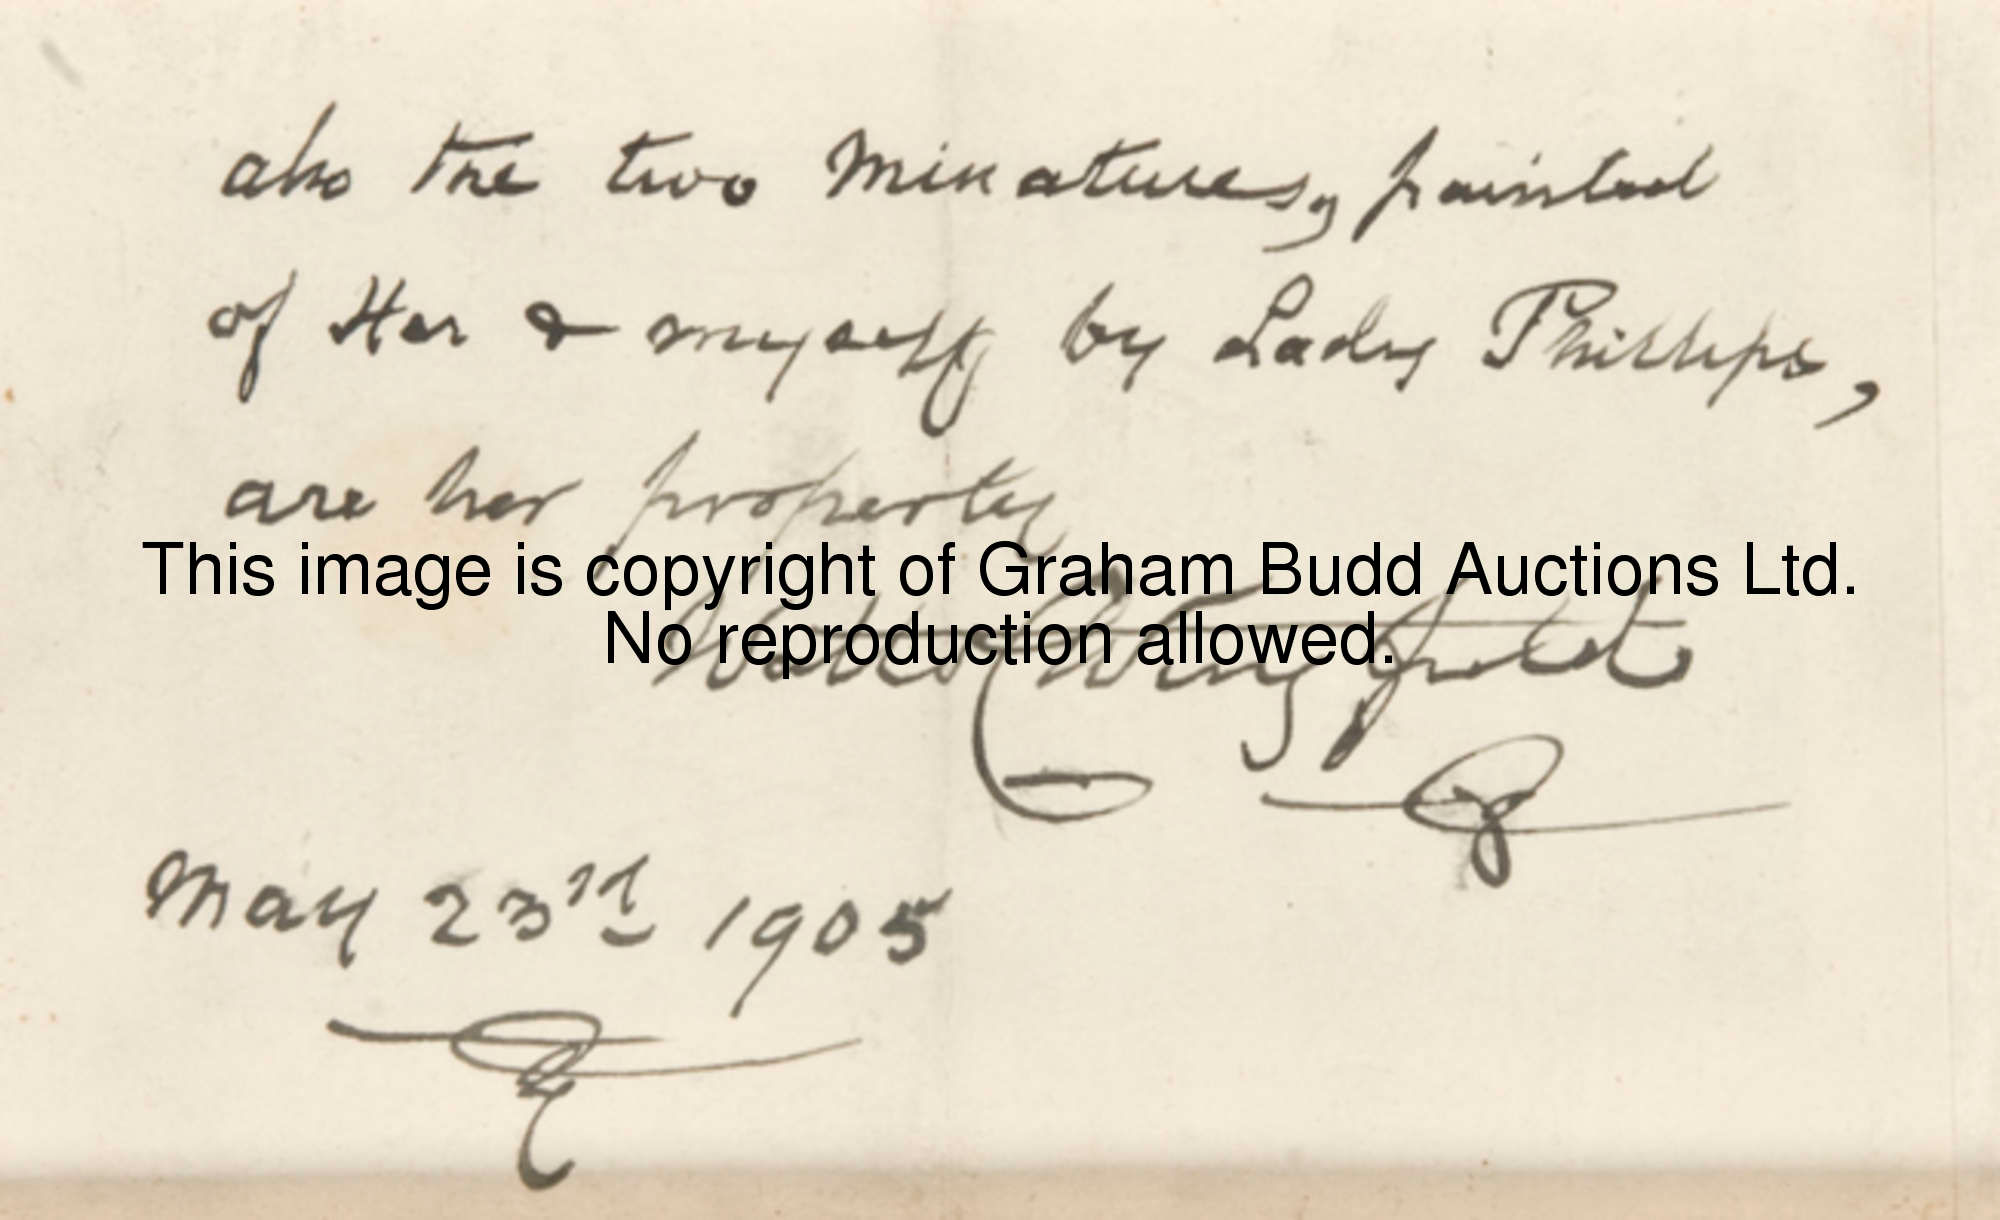 also the two Minatures, painted
of Her & myself by Lady Phillips,
are her property
This image is copyright of Graham Budd Auctions Ltd.
No reproduction allowed.
Walter C Wingfield
May 23rd 1905